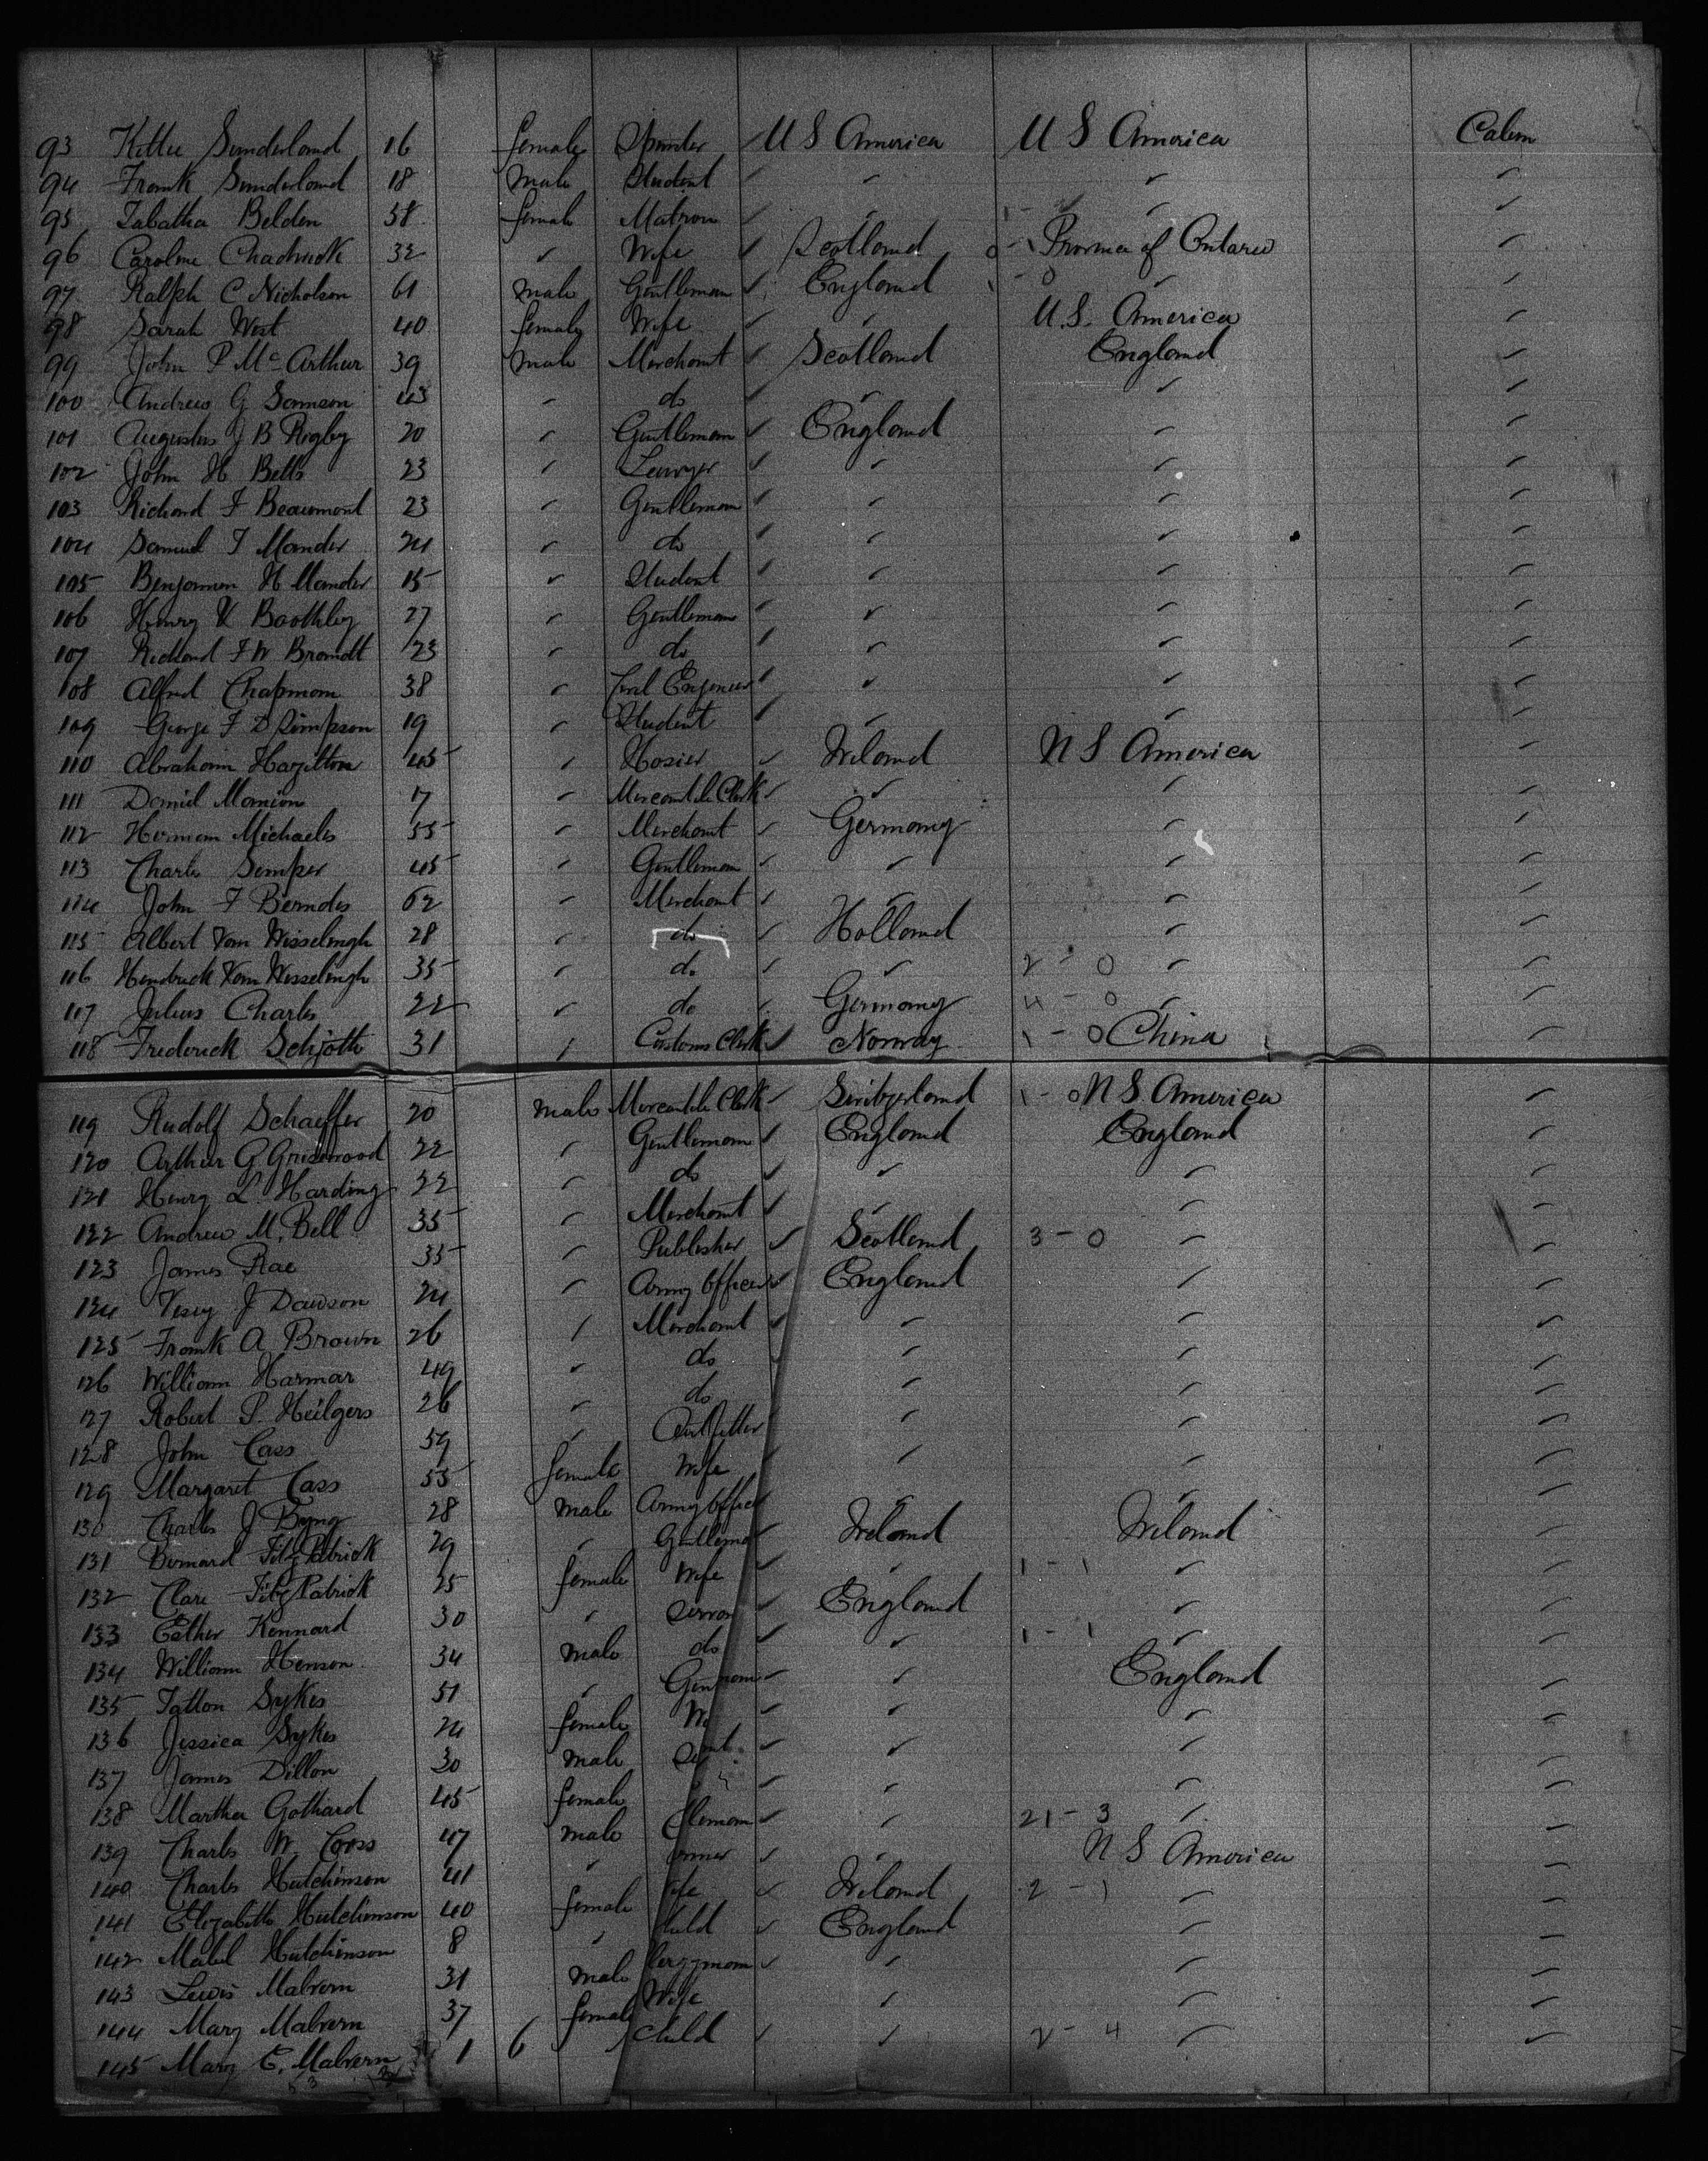 93 Kittie Sunderland 16 female Spinster U S America U S America Cabin
94 Frank Sunderland 18 male Student " " "
95 Tabatha Belden 58 female Matron " " "
96 Caroline Chadwick 32 " Wife Scotland Province of Ontario "
97 Ralph C Nicholson 61 male Gentleman England " "
98 Sarah West 40 female Wife " U.S. America "
99 John P McArthur 39 male Merchant Scotland England "
100 Andrew G Samson 43 " do " " "
101 Augustus J B Rigby 20 " Gentleman England " "
102 John H Betts 23 " Lawyer " " "
103 Richard F Beaumont 23 " Gentleman " " "
104 Samuel T Mander 24 " do " " "
105 Benjamin H Mander 15 " Student " " "
106 Henry V Boothby 27 " Gentleman " " "
107 Richard F W Brandt 23 " do " " "
108 Alfred Chapman 38 " Civil Engineer " " "
109 George F D Simpson 19 " Student " " "
110 Abraham Hazilton 45 " Hosier Ireland N S America "
111 Daniel Manion 17 " Mercantile Clerk " " "
112 Herman Michaelis 55 " Merchant Germany " "
113 Charles Semper 45 " Gentleman " " "
114 John F Berndes 62 " Merchant " " "
115 Albert Van Wisselingh 28 " do Holland " "
116 Hendrick Van Wisselingh 35 " do " 2 - 0 " "
117 Julius Charles 22 " do Germany 4 - 0 " "
118 Frederick Schjoth 31 " Customs Clerk Norway 1 - 0 China "
119 Rudolf Schaeffer 20 male Mercantile Clerk Switzerland 1 - 0 N S America "
120 Arthur G Griswood 22 " Gentleman England England "
121 Henry L Harding 22 " do " " "
122 Andrew M. Bell 35 " Merchant " " "
123 James Rae 35 " Publisher Scotland 3 - 0 " "
124 Vesey J Dawson 24 " Army Officer England " "
125 Frank A Brown 26 " Merchant " " "
126 William Harmar 49 " do " " "
127 Robert P. Heilgers 26 " do " " "
128 John Cass 59 " Outfitter " " "
129 Margaret Cass 55 female Wife " " "
130 Charles J Byng 28 male Army Officer " " "
131 Bernard FitzPatrick 29 " Gentleman Ireland Ireland "
132 Clare FitzPatrick 25 female Wife " 1 - 1 " "
133 Esther Kennard 30 " Servan England " "
134 William Henson 34 male do " 1 - 1 " "
135 Tatton Sykes 51 " Gen man " England "
136 Jessica Sykes 24 female W " " "
137 James Dillon 30 male " " "
138 Martha Gothard 45 female " " "
139 Charles W. Cross 47 male leman " 21 - 3 " "
140 Charles Hutchinson 41 " armer " N S America "
141 Elizabeth Hutchinson 40 female ife Ireland 2 - 1 " "
142 Mabel Hutchinson 8 " hild England " "
143 Lewis Malvern 31 male lergyman " " "
144 Mary Malvern 37 female Wife " " "
145 Mary E. Malvern 1 6 Child " 2 - 4 " "